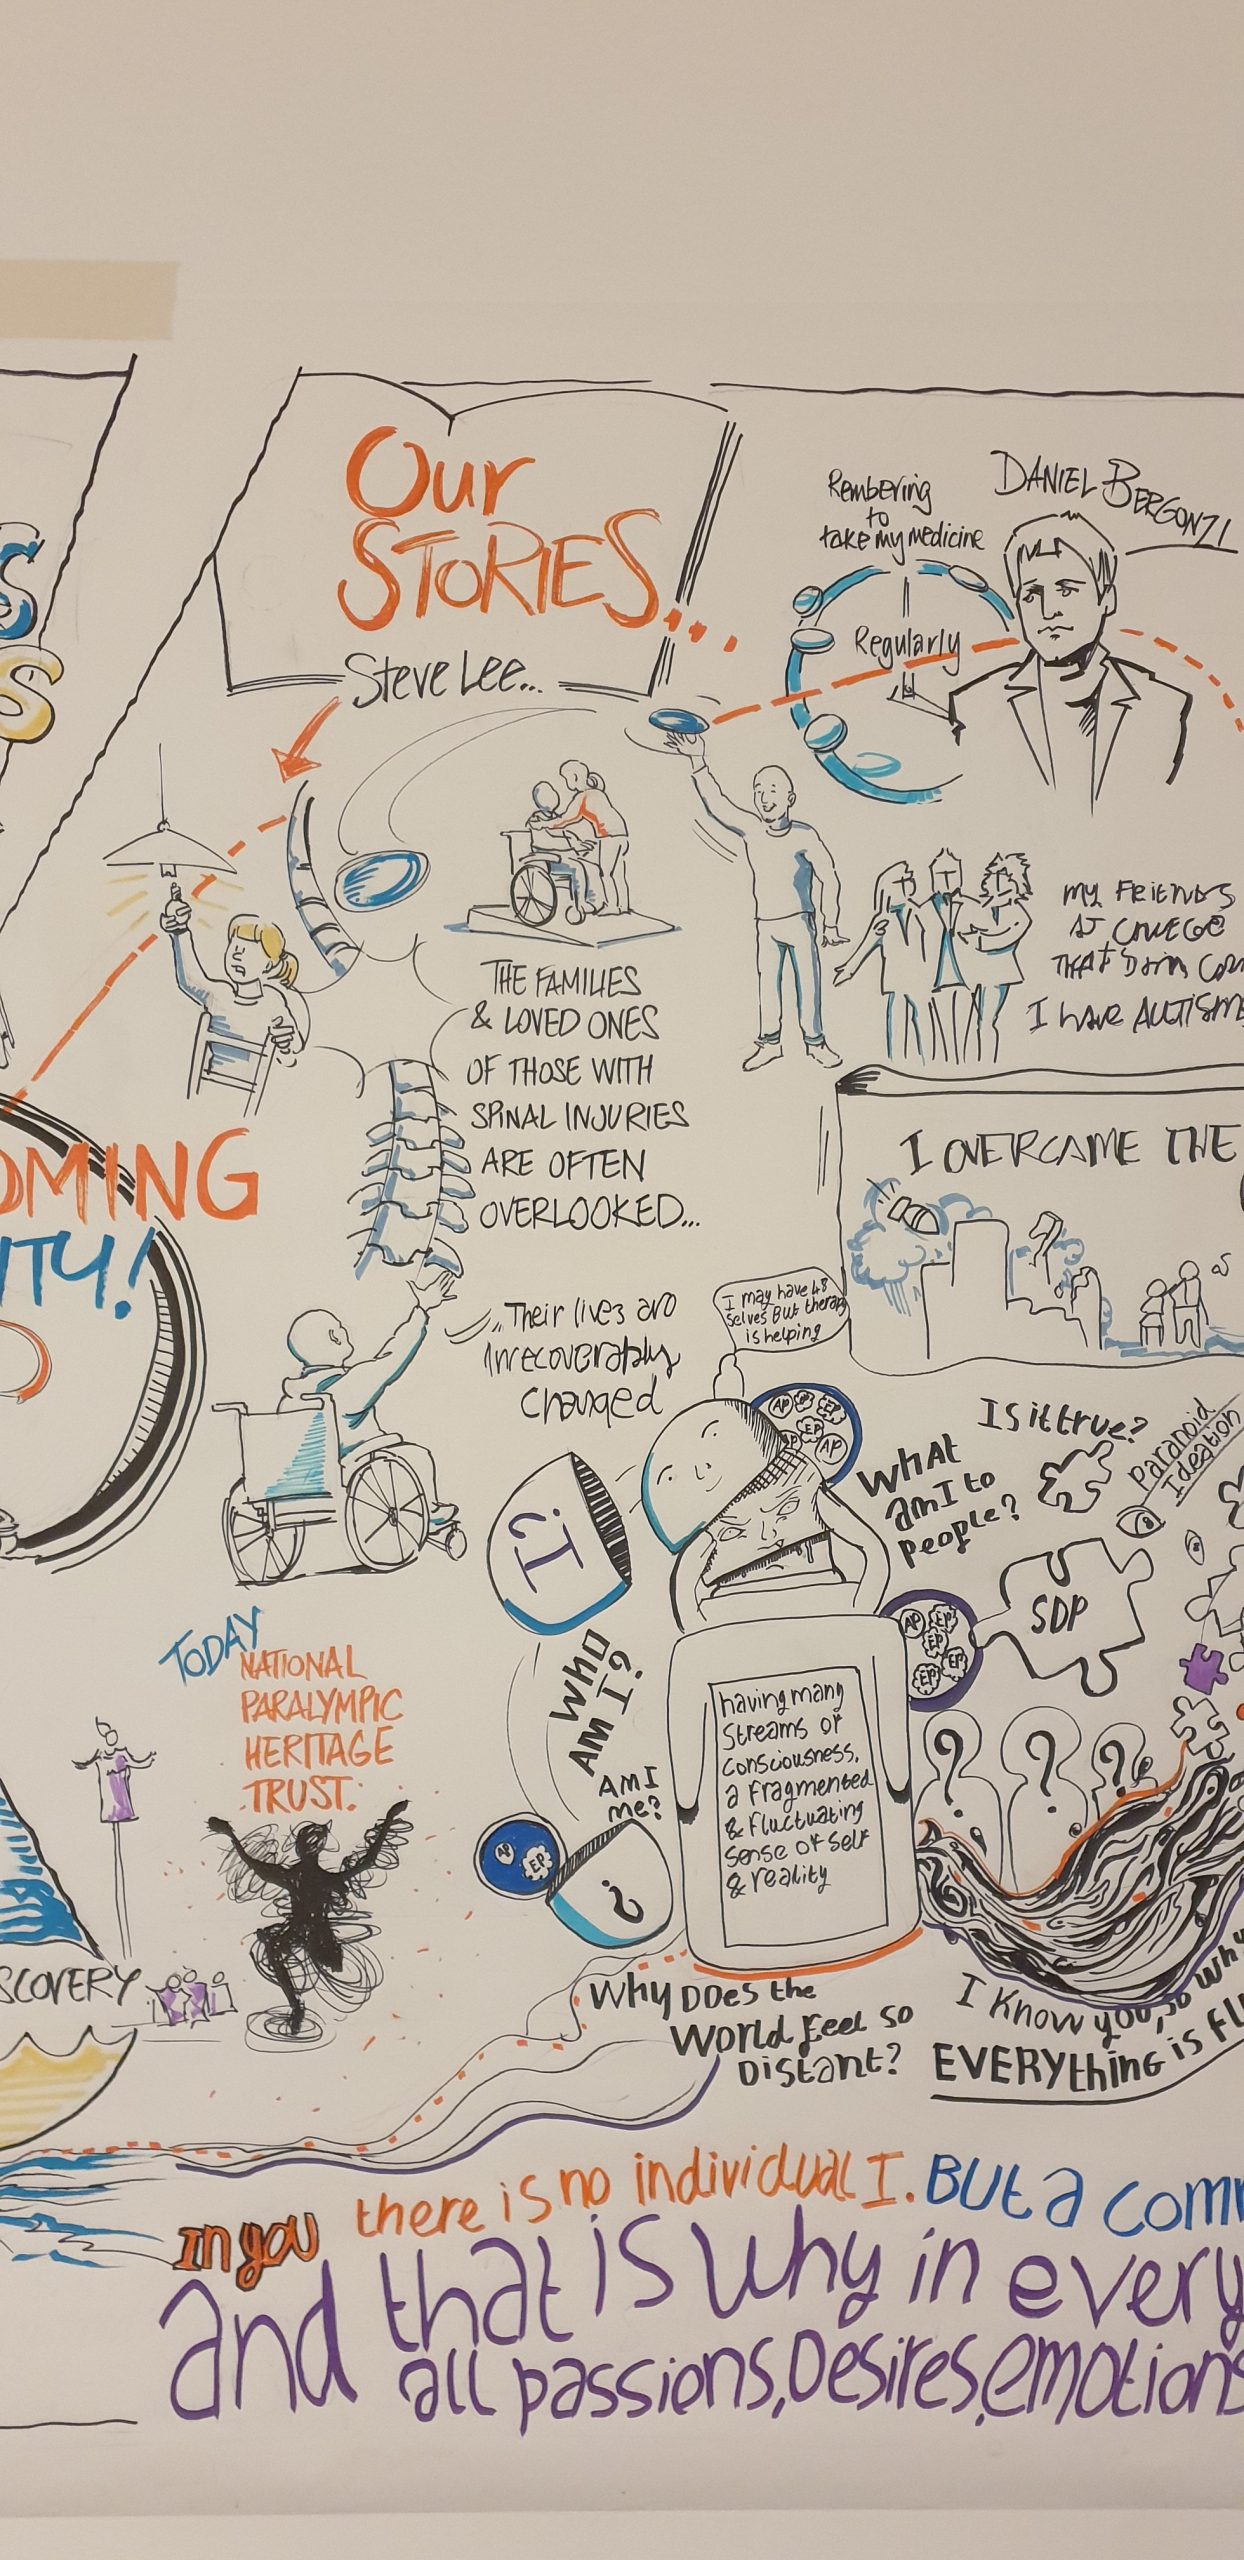 S
S
Our
STORIES...
Steve Lee...
DANIEL BERGONZI
Rembering
to
take my medicine
Regularly
MY FRIENDS
AT COLLEGE
THAT
I HAVE AUTISM
THE FAMILIES
& LOVED ONES
OF THOSE WITH
SPINAL INJURIES
ARE OFTEN
OVERLOOKED...
...Their lives are
irrecoverably
changed
OMING
ITY!
I OVERCAME THE
I may have 48
selves But therapy
is helping
AP EP EP
AP EP AP
Is it true?
Paranoid
Ideation
What
am I to
people?
¿I
SDP
AP EP
EP
EP EP
WHO
AM I?
AM I
me?
AP EP
?
having many
Streams of
consciousness,
a fragmented
& fluctuating
sense of self
& reality
? ? ?
TODAY
NATIONAL
PARALYMPIC
HERITAGE
TRUST.
SCOVERY
Why Does the
World feel so
Distant?
I know you, so why
EVERYthing is FL
In you there is no individual I. But a comm
and that is why in every
all passions, Desires, emotions